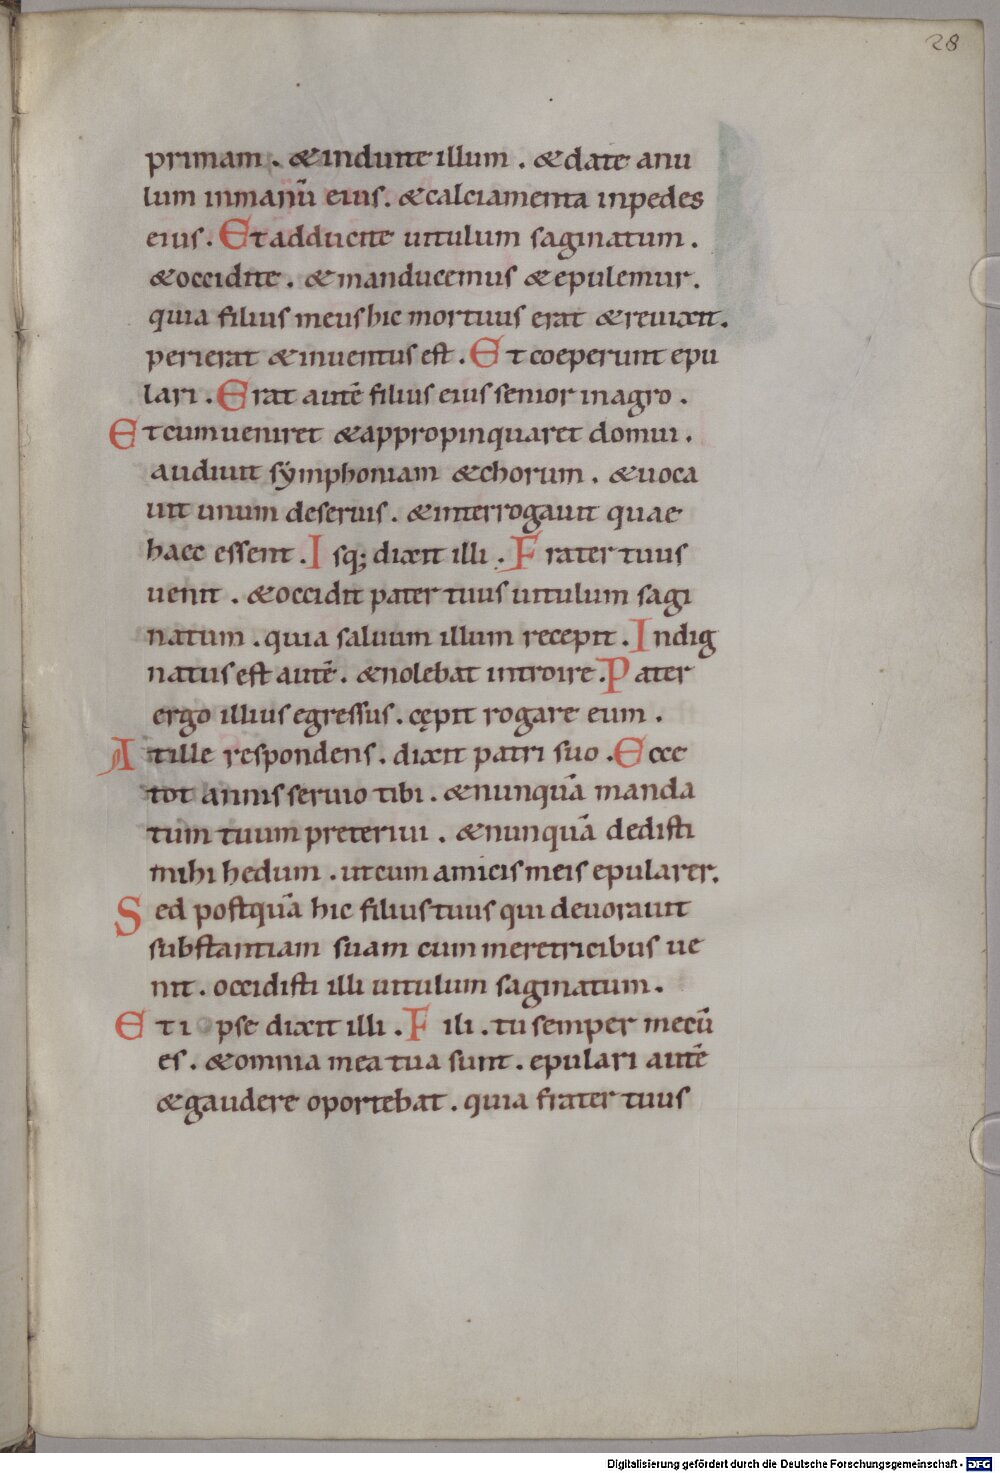 28
primam . & induite illum . & date anu
lum inmanū eius . & calciamenta inpedes
eius . Et adducite uitulum saginatum .
& occidite . & manducemus & epulemur .
quia filius meus hic mortuus erat & reuixit .
perierat & inuentus est . Et coeperunt epu
lari . Erat autē filius eius senior inagro .
Et cum ueniret & appropinquaret domui .
audiuit sẏmphoniam & chorum . & uoca
uit unum deseruis . & interrogauit quae
haec essent . Isq; dixit illi . Frater tuus
uenit . & occidit pater tuus uitulum sagi
natum . quia saluum illum recepit . Indig
natus est autē . & nolebat introire . Pater
ergo illius egressus . cępit rogare eum .
At ille respondens . dixit patri suo . Ecce
tot annis seruio tibi . & nunquā manda
tum tuum preteriui . & nunquā dedisti
mihi hedum . ut cum amicis meis epularer .
Sed postquā hic filius tuus qui deuorauit
substantiam suam cum meretricibus ue
nit . occidisti illi uitulum saginatum .
Et ipse dixit illi . Fili . tu semper mecū
es . & omnia mea tua sunt . epulari autē
& gaudere oportebat . quia frater tuus
Digitalisierung gefördert durch die Deutsche Forschungsgemeinschaft - DFG